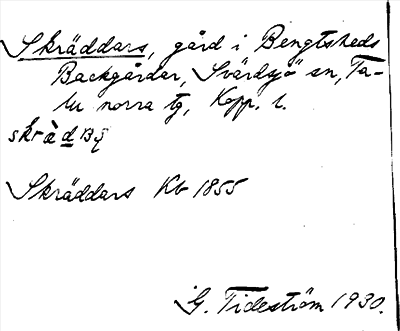 Skräddars, gård i Bengtsheds
Backgårdar, Svärdsjö sn, Fa-
lu norra tg, Kopp. l.
Skräddars Kb 1855
G. Tideström 1930.